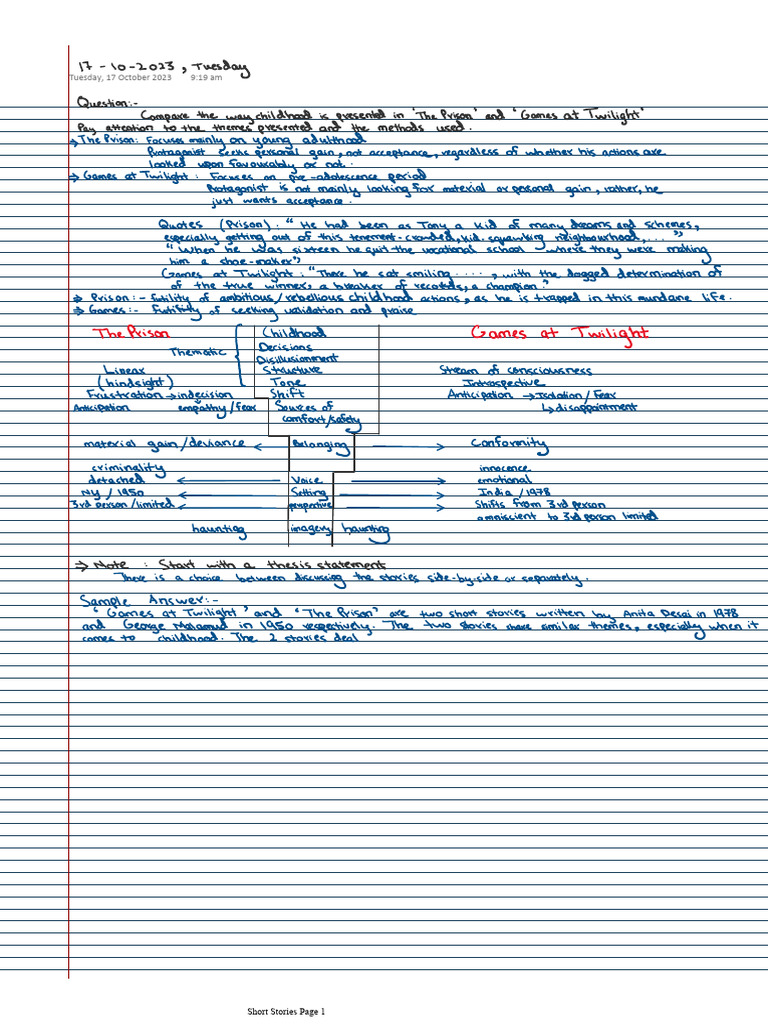 17-10-2023, Tuesday
Tuesday, 17 October 2023 9:19 am
Question:-
Compare the way childhood is presented in 'The Prison' and 'Games at Twilight'
Pay attention to the themes presented and the methods used.
→ The Prison: Focuses mainly on young adulthood
Protagonist seeks personal gain, not acceptance, regardless of whether his actions are
looked upon favourably or not.
→ Games at Twilight: Focuses on pre-adolescence period
Protagonist is not mainly looking for material or personal gain, rather, he
just wants acceptance.
Quotes (Prison): "He had been as Tony a kid of many dreams and schemes,
especially getting out of this tenement-crowded, kid-squawking neighbourhood,..."
"When he was sixteen he quit the vocational school where they were making
him a shoe-maker"
Games at Twilight: "There he sat smiling ...., with the dogged determination of
of the true winner, a breaker of records, a champion."
⇒ Prison:- futility of ambitious/rebellious childhood actions, as he is trapped in this mundane life.
⇒ Games:- Futility of seeking validation and praise
The Prison Childhood Games at Twilight
Thematic Decisions
Disillusionment
Linear Structure Stream of consciousness
(hindsight) Tone Introspective
Frustration → indecision Shift Anticipation → Isolation/Fear
Anticipation empathy/fear Sources of ↳ disappointment
comfort/safety
material gain/deviance ← Belonging → Conformity
criminality innocence
detached ← Voice → emotional
NY / 1950 ← Setting → India / 1978
3rd person/limited ← perspective → Shifts from 3rd person
omniscient to 3rd person limited
haunting imagery haunting
⇒ Note : Start with a thesis statement
There is a choice between discussing the stories side-by-side or separately.
Sample Answer:-
'Games at Twilight' and 'The Prison' are two short stories written by Anita Desai in 1978
and George Malamud in 1950 respectively. The two stories share similar themes, especially when it
comes to childhood. The 2 stories deal
Short Stories Page 1